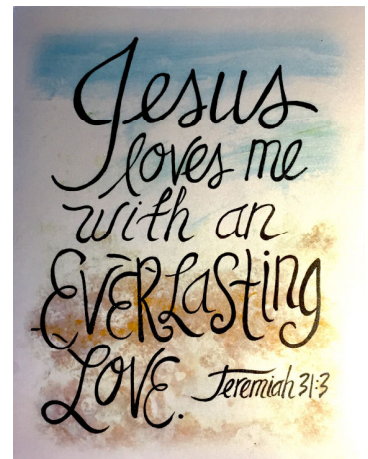 Jesus
loves me
with an
EVERLasting
LOVE. Jeremiah 31:3